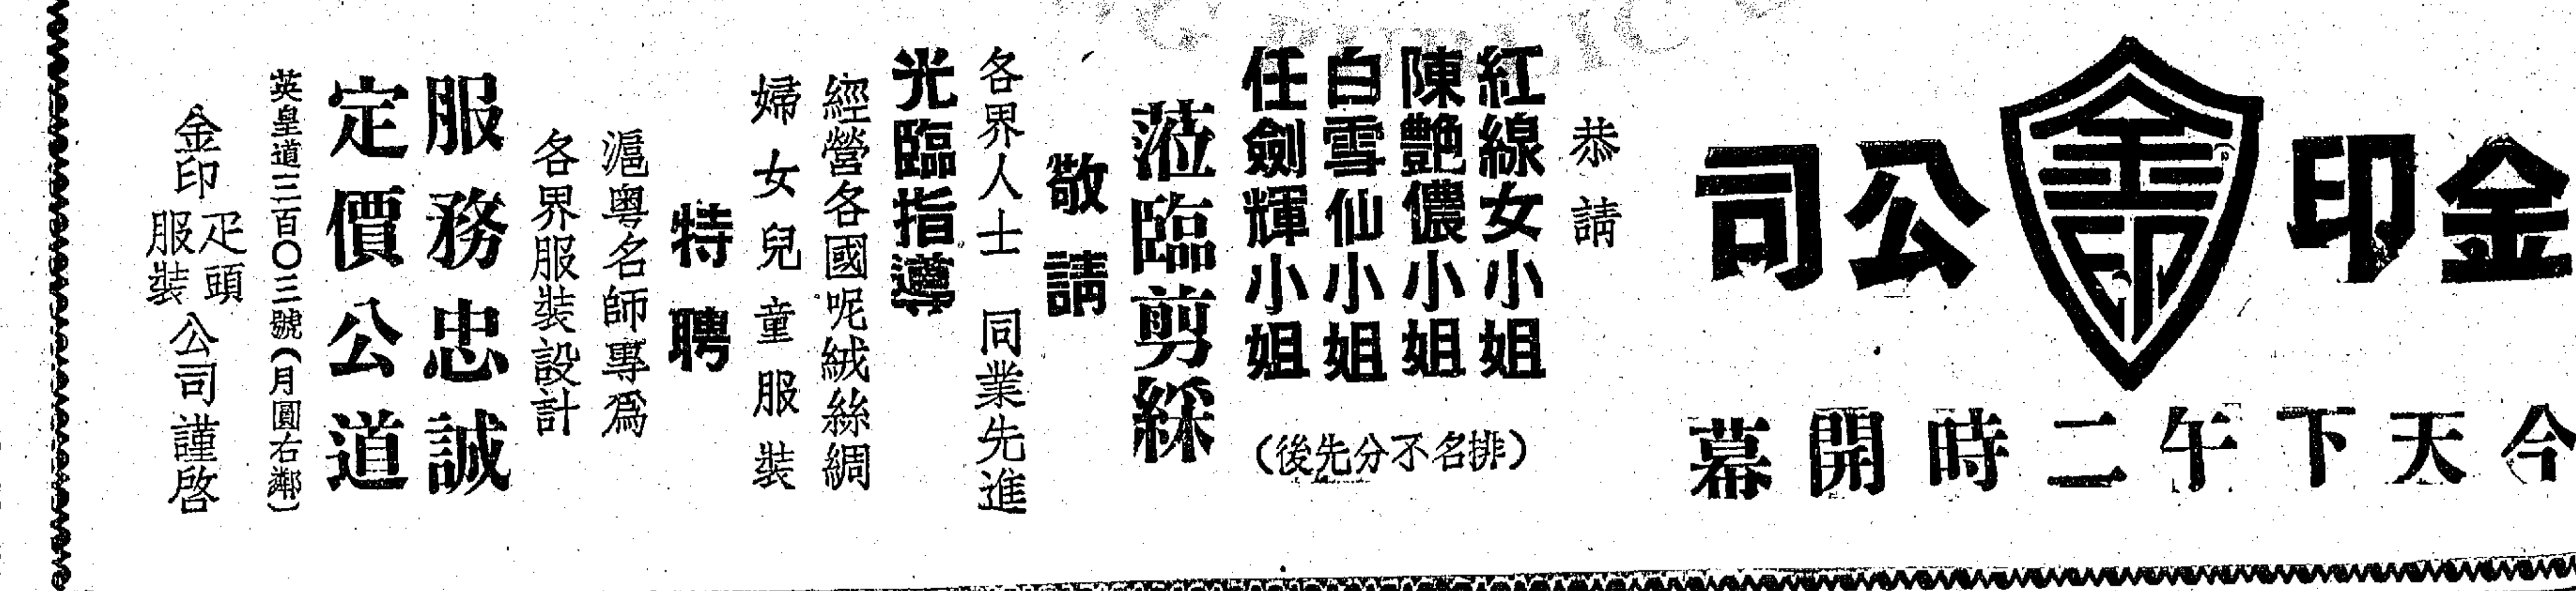 金印公司
金印
今天下午二時開幕
恭請
紅線女小姐
陳艷儂小姐
白雪仙小姐
任劍輝小姐
（排名不分先後）
蒞臨剪綵
敬請
各界人士 同業先進
光臨指導
經營各國呢絨絲綢
婦女兒童服裝
特聘
滬粵名師專爲
各界服裝設計
服務忠誠
定價公道
英皇道三百〇三號（月圓右鄰）
金印疋頭服裝公司謹啓